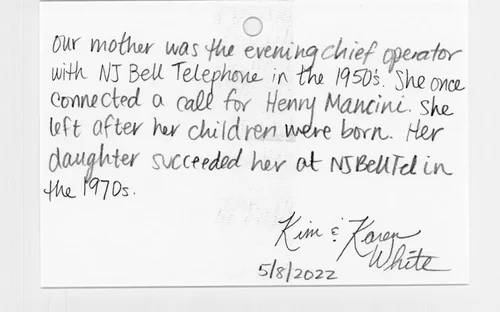 our mother was the evening chief operator
with NJ Bell Telephone in the 1950's. She once
connected a call for Henry Mancini. She
left after her children were born. Her
daughter succeeded her at NJBellTel in
the 1970s.
Kim & Karen
White
5/8/2022